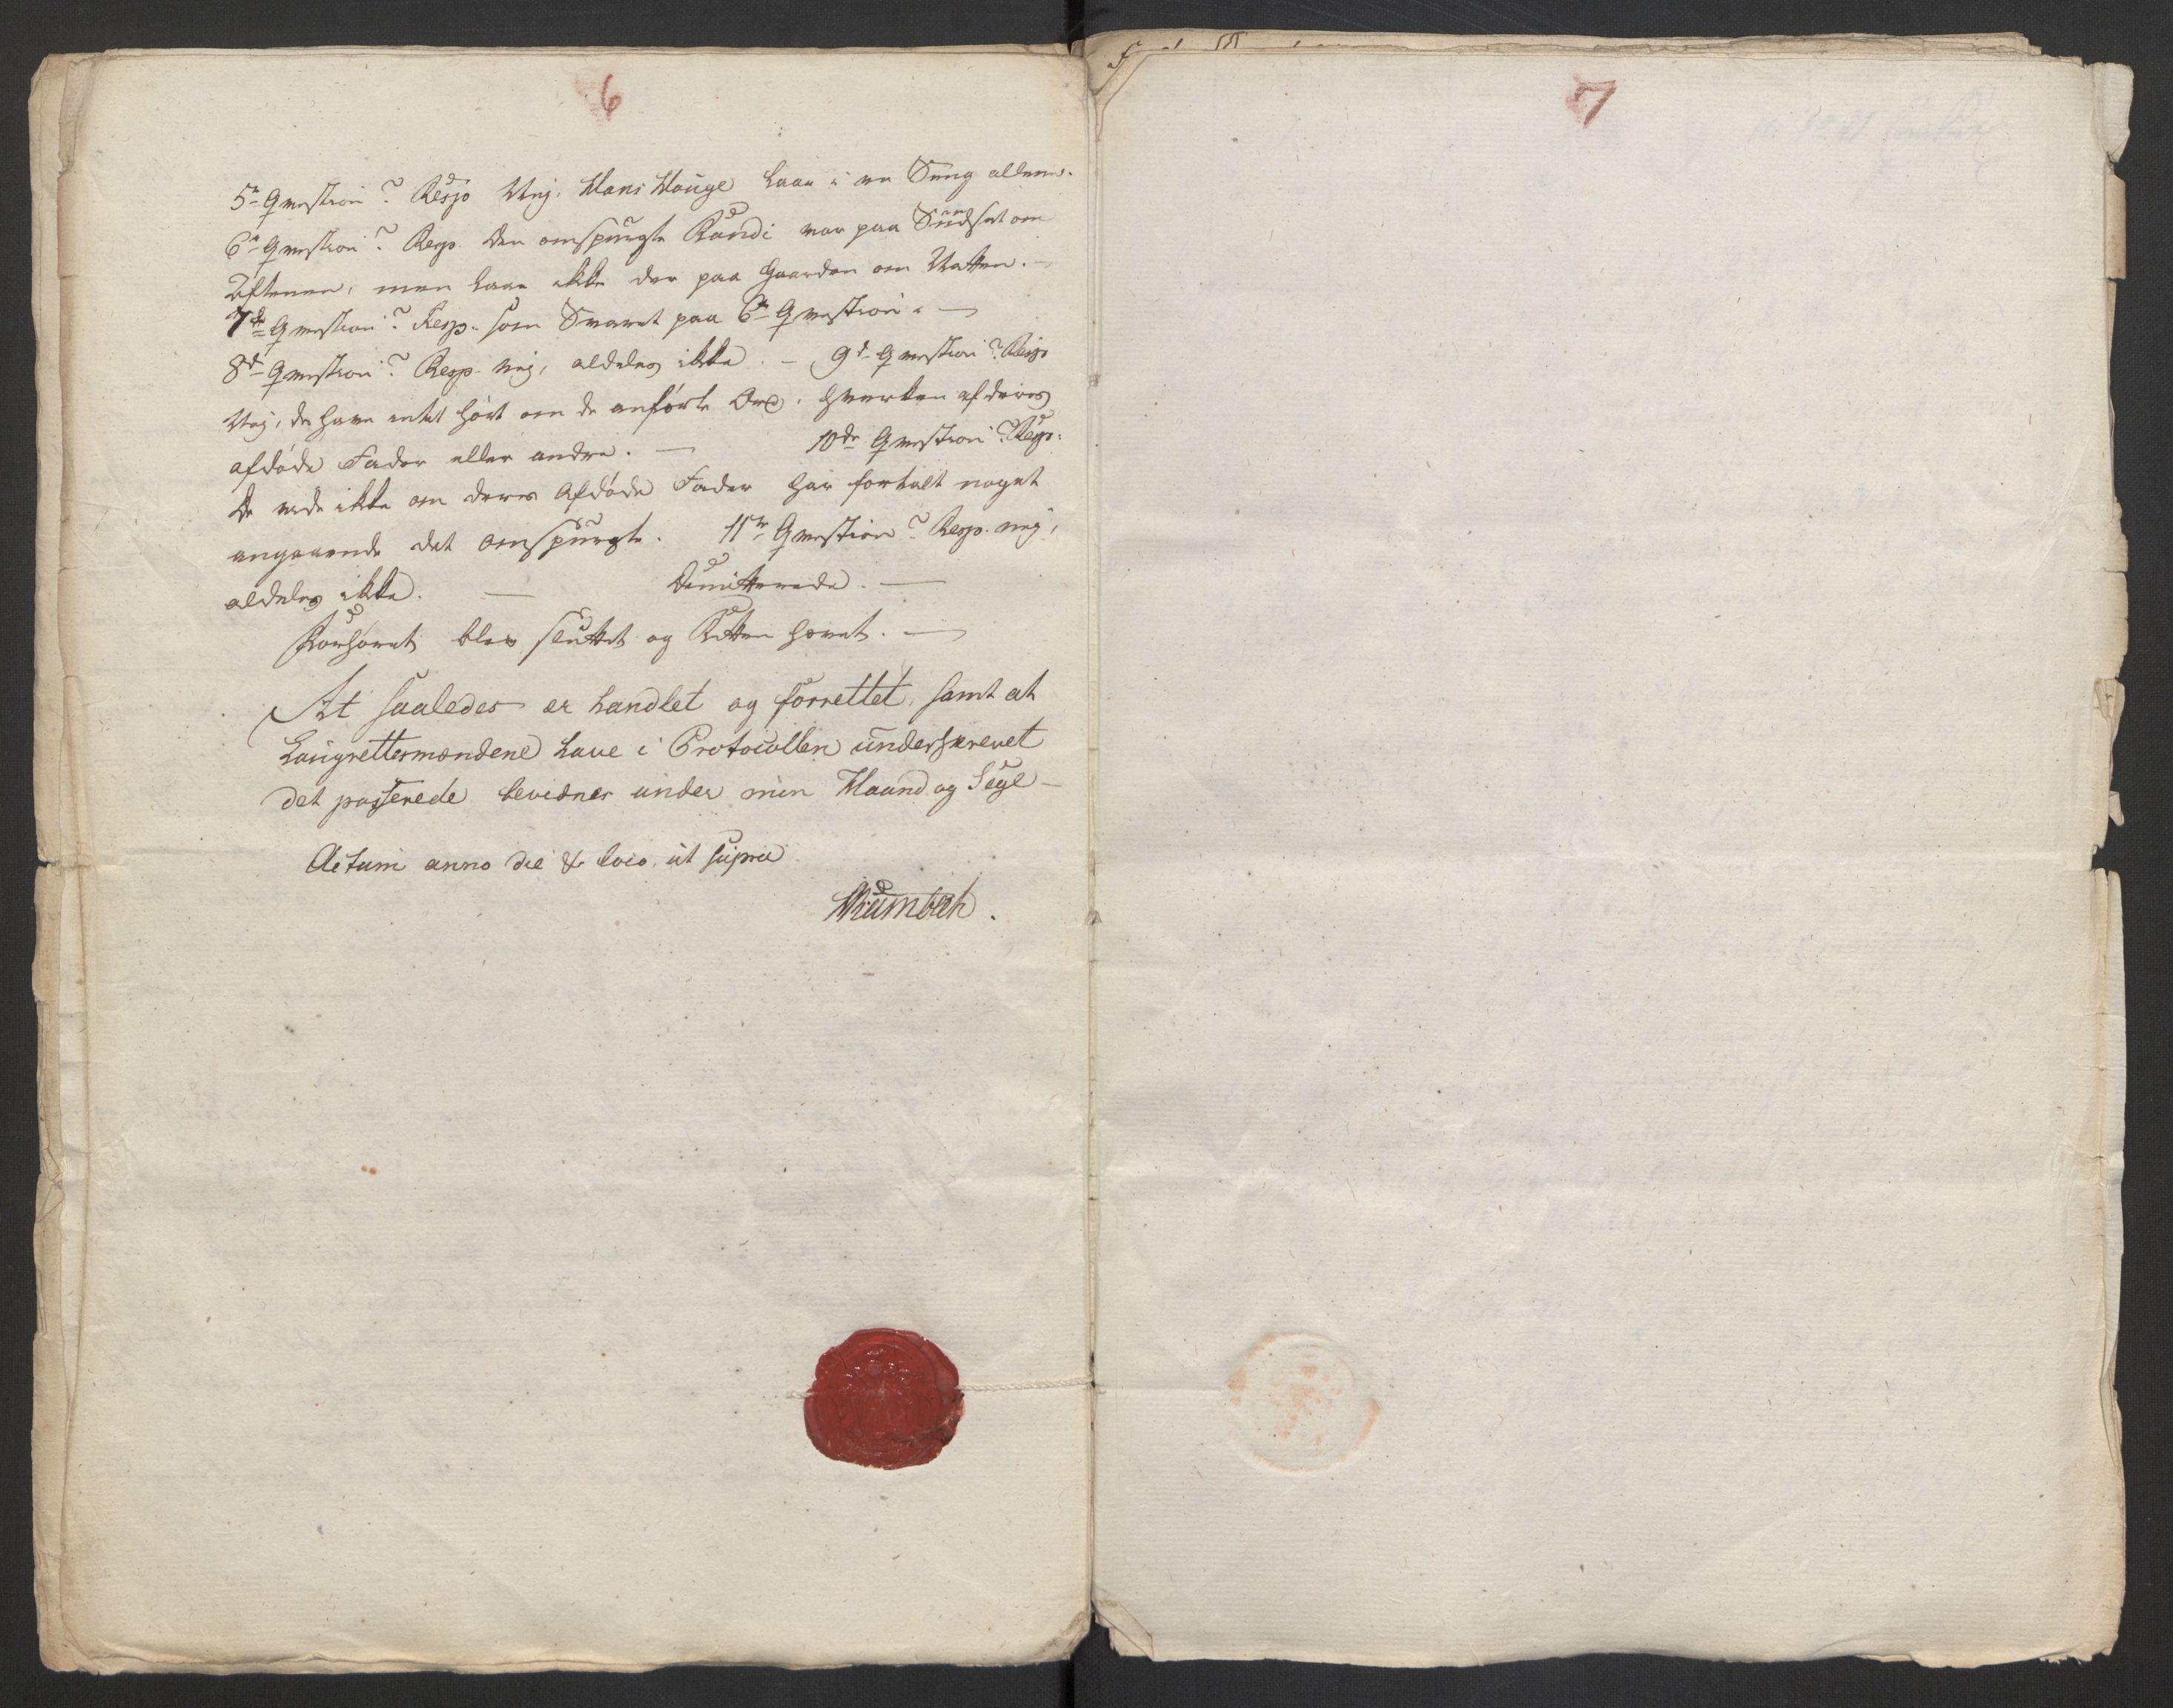 6
5te Qvestion? Resp. Nej. Hans Hauge laae i en Seng allene.
6te Qvestion? Resp. den omspurgte Randi var paa Sundset om
Aftenen, men laae ikke der paa Gaarden om Natten. —
7de Qvestion? Resp. som Svaret paa 6te Qvestion. —
8de Qvestion? Resp. nej, aldeles ikke. — 9de Qvestion? Resp.
Nej, de have intet hørt om de anførte Ord, hverken af deres
afdøde Fader eller andre. — 10de Qvestion? Resp:
De vide ikke om deres afdøde Fader har fortalt noget
angaaende det omspurgte. 11te Qvestion? Resp. nej,
aldeles ikke. — Demitterede. —
Forhøret blev sluttet og Retten hævet. —
At saaledes er handlet og forrettet, samt at
Laugrettesmændene have i Protocollen underskrevet
det passerede bevidner under min Haand og Segl —
Actum anno die & loco ut supra
7